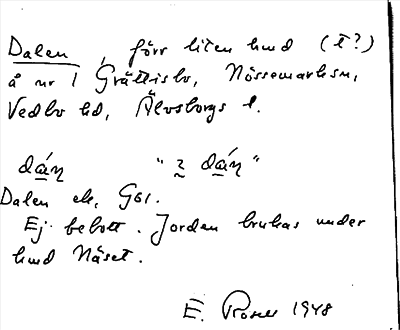 Dalen, förr liten hmd (t?)
å nr 1 Grättisbo, Nössemarks sn,
Vedbo hd, Älvsborgs l.
dáη "2 dáη"
Dalen ek, GSl.
Ej bebott. Jorden brukas under
hmd Näset.
E. Rosell 1948